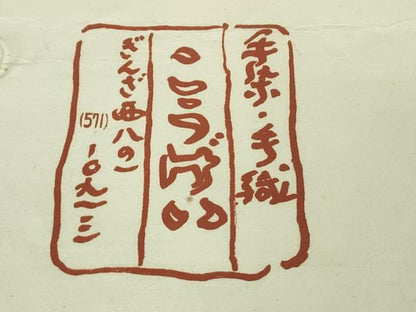 手染・手織
こうげい
ぎんざ西八の
(571) 一〇九